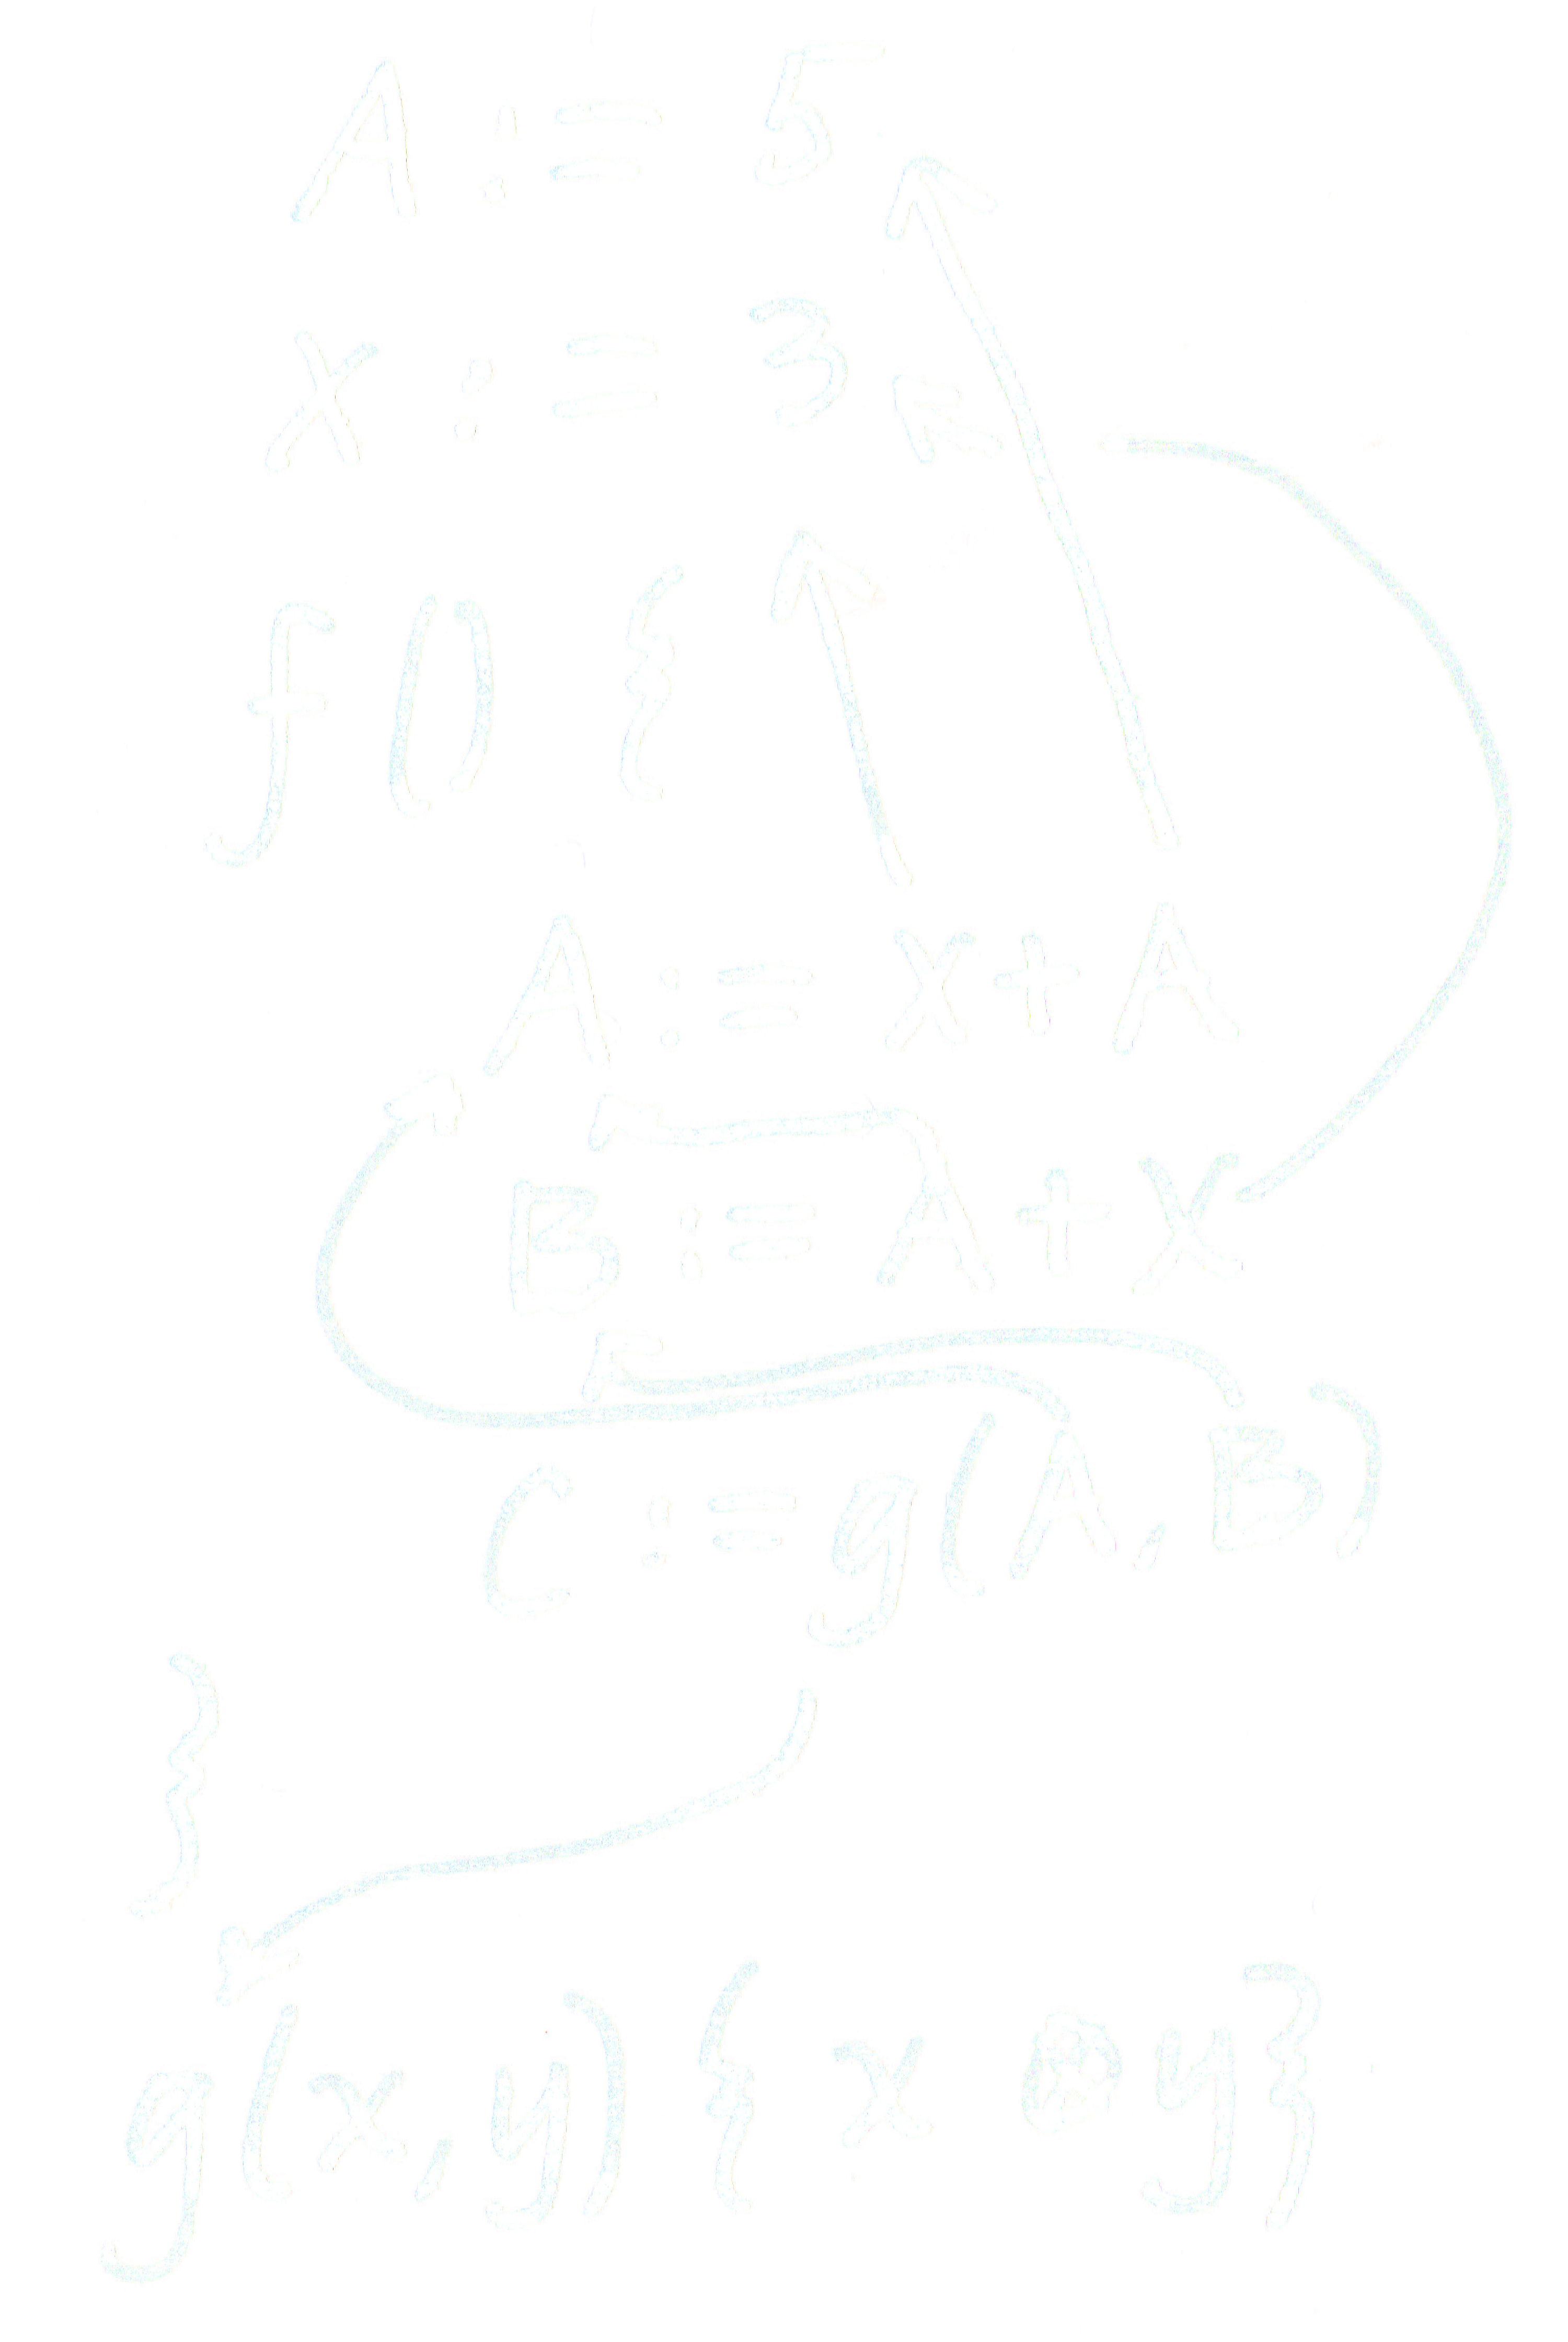 A := 5
X := 3
f() {
A := X+A
B := A+X
C := g(A, B)
}
g(x, y) { x y}